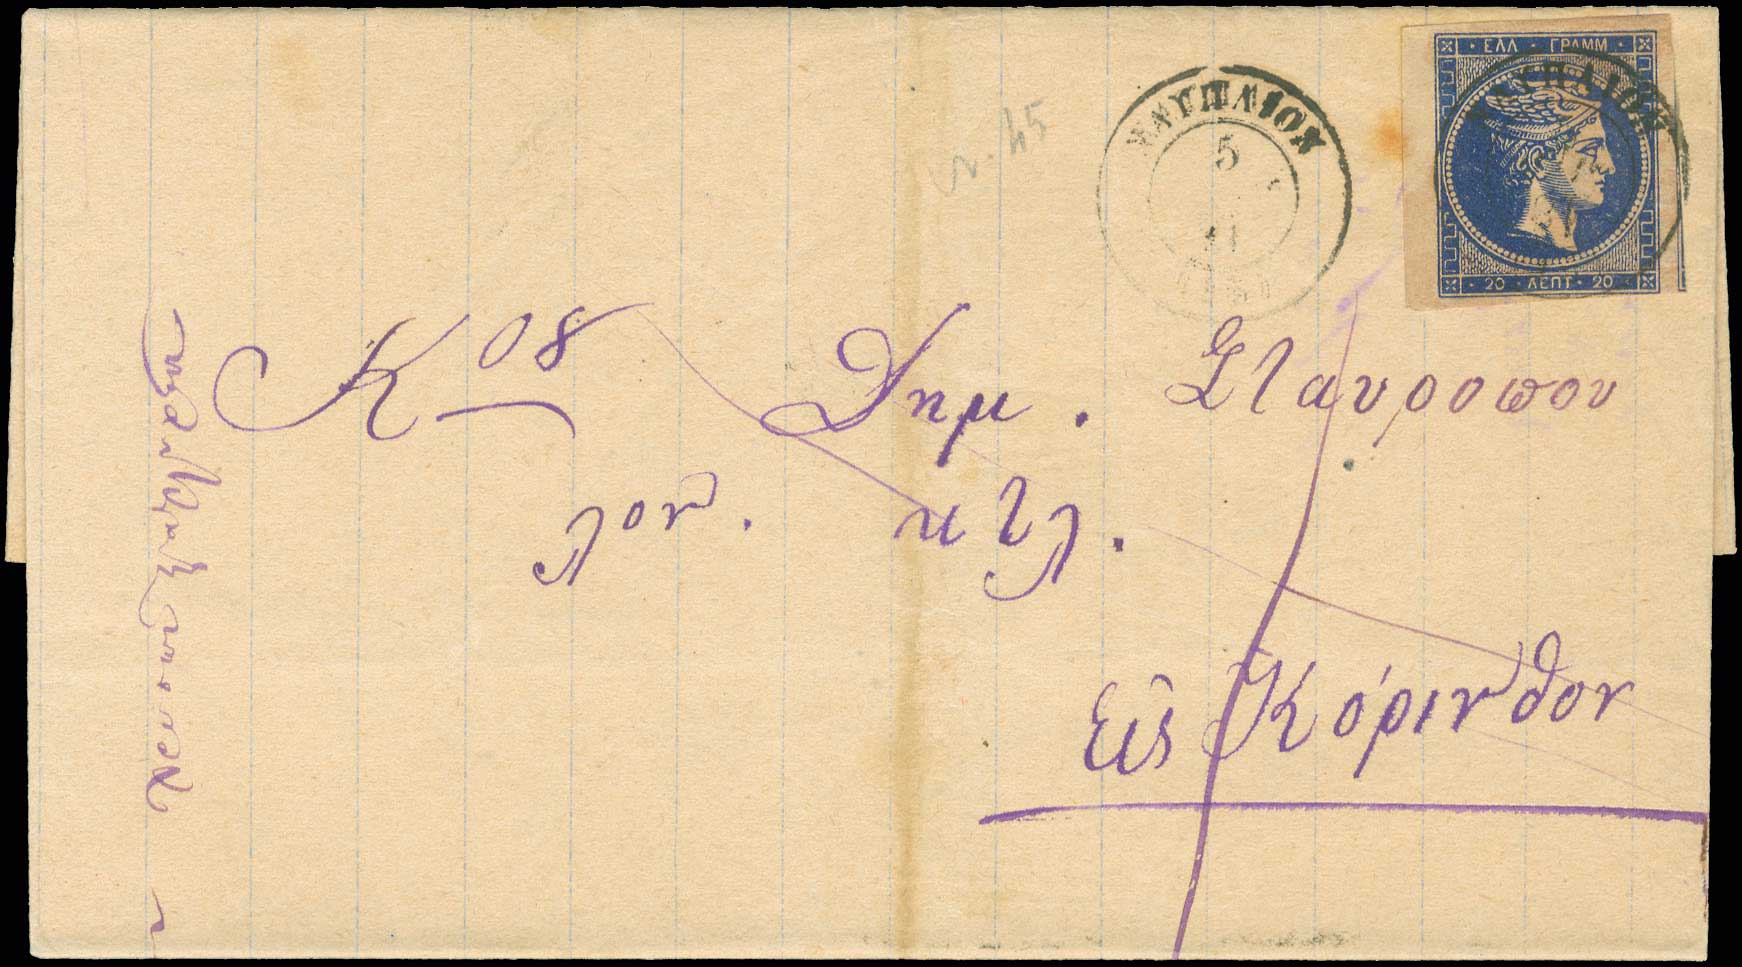 ΕΛΛ · ΓΡΑΜΜ
20 · ΛΕΠΤ · 20
ΝΑΥΠΛΙΟΝ
5
11
ΝΑΥΠΛΙΟΝ
45
Κον Δημ. Σταυροπου
λον. κτλ.
Εἰς Κόρινθον